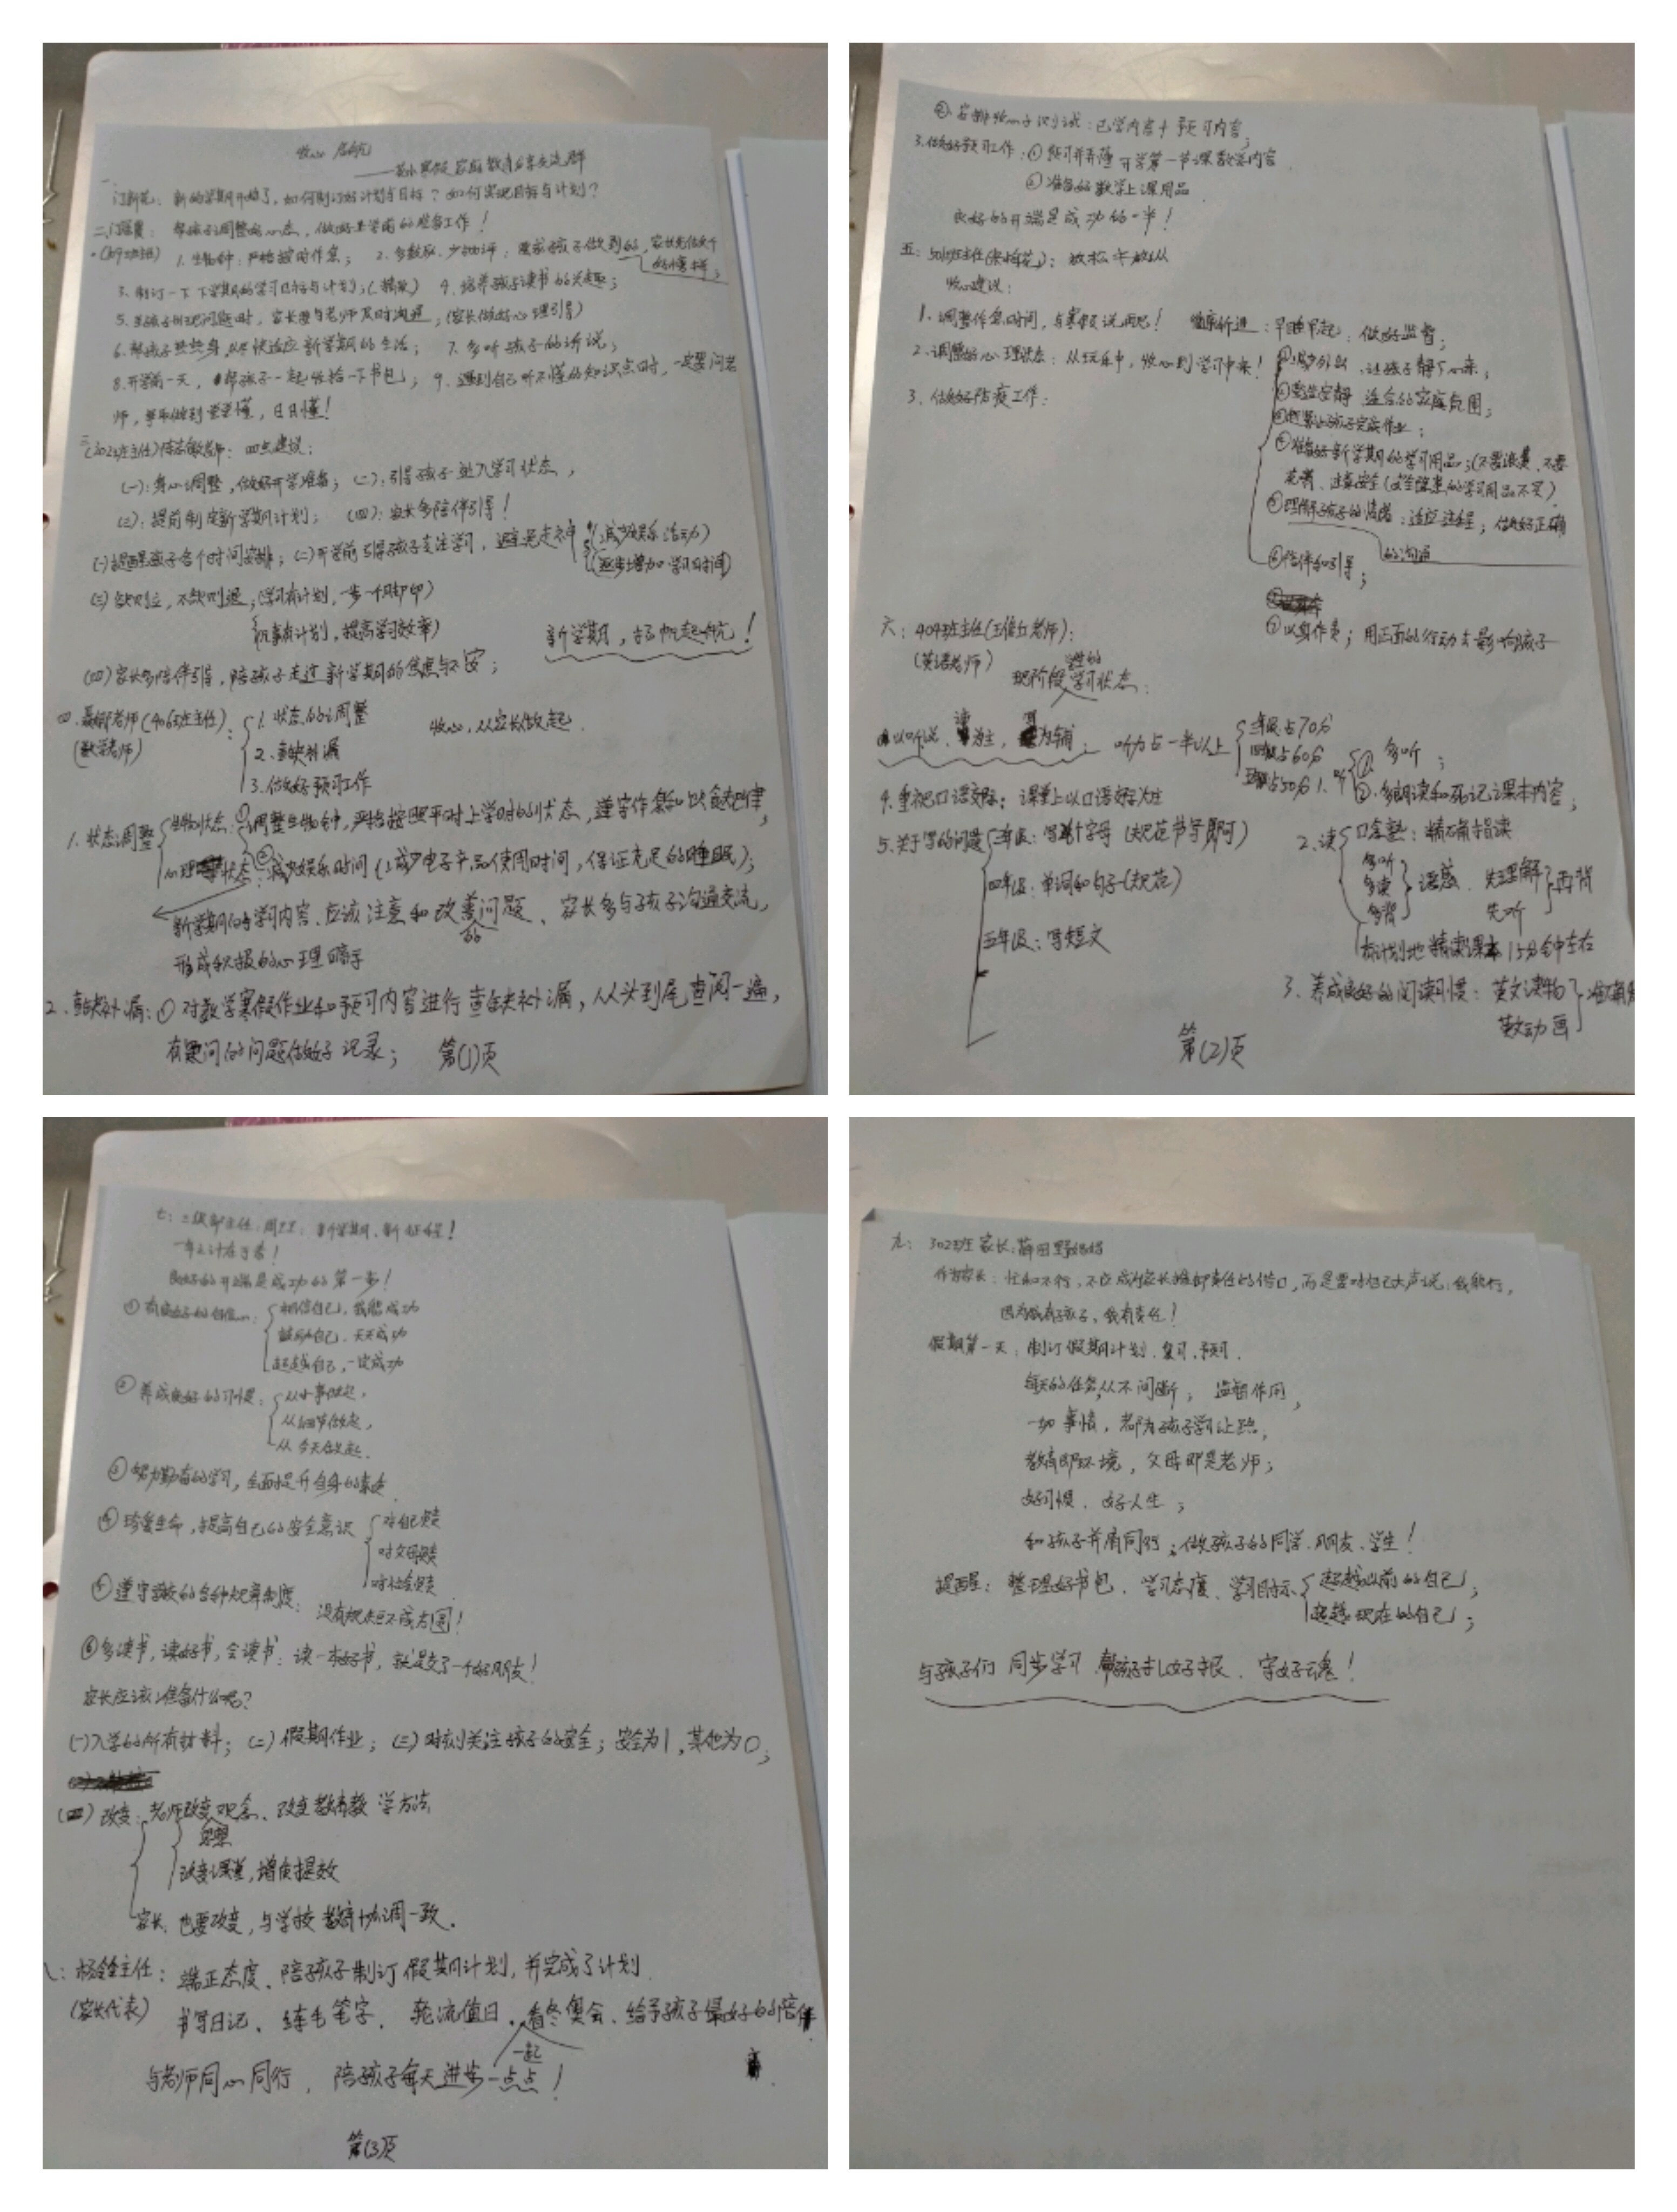 收心 启航
寒假家庭教育分享交流群
一、 新的学期开始了，如何制订好计划与目标？如何实现目标与计划？
帮孩子调整好心态，做好上学前的准备工作！
1. 生物钟：严格按时作息； 2. 多鼓励、少批评；要求孩子做到的，家长先做个好榜样；
3. 制订一下下学期的学习目标与计划； 4. 培养孩子读书的兴趣；
5. 当孩子出现问题时，家长要与老师及时沟通；(家长做好心理引导)
6. 尽快适应新学期的生活； 7. 多听孩子的诉说；
8. 开学前一天，帮孩子一起收拾一下书包； 9. 遇到自己听不懂的知识点时，一定要问老
师，争取做到堂堂懂，日日懂！
三 (302班主任) 老师：四点建议：
(一)：身心调整，做好开学准备； (二)：引导孩子进入学习状态；
(三)：提前制定新学期计划； (四)：家长多陪伴引导！
(一)提醒孩子各个时间安排；(二)开学前引导孩子专注学习，避免走神 (减少娱乐活动)
(逐步增加学习时间)
(三) 不缺则退；(学习有计划，一步一个脚印)
(凡事有计划，提高学习效率) 新学期，扬帆起航！
(四)家长多陪伴引导，陪孩子走过新学期的焦虑与不安；
四. 老师(406班主任)： 1. 状态的调整 收心，从家长做起
(数学老师) 2. 查缺补漏
3. 做好预习工作
1. 状态调整 生物状态：①调整生物钟，严格按照平时上学时的状态，遵守作息和饮食规律；
心理状态：②减少娱乐时间(减少电子产品使用时间，保证充足的睡眠)；
新学期的学习内容、应该注意和改善的问题、家长多与孩子沟通交流，
形成积极的心理暗示
2. 查缺补漏：① 对数学寒假作业和预习内容进行查缺补漏，从头到尾查阅一遍，
有疑问的问题做好记录； 第(1)页
② 安排收心测试：已学内容＋预习内容；
3. 做好预习工作：① 预习并弄懂开学第一节课数学内容
② 准备好数学上课用品
良好的开端是成功的一半！
五：501班主任：放松不放纵
收心建议：
1. 调整作息时间，与寒假说再见！ 循序渐进：早睡早起；做好监督；
2. 调整好心理状态：从玩乐中，收心到学习中来！
3. 做好防疫工作：
①减少外出、让孩子静下心来；
②营造安静、适合的家庭氛围；
③督促孩子完成作业；
④准备好新学期的学习用品；(不要浪费、不要
花哨、注意安全(安全隐患的学习用品不买)
⑤理解孩子的情绪；适应过程；做好正确的沟通
⑥陪伴和引导；
⑦以身作责；用正面的行动去影响孩子
六：404班主任(老师)：
(英语老师) 现阶段学生的学习状态：
以听说、读为主，写为辅； 听力占一半以上 三年级占70分
四年级占60分
五年级占50分
1. 听 ① 多听；
② 多朗读和死记课本内容；
4. 重视口语交际：课堂上以口语交际为主
5. 关于写的问题 三年级：写单个字母(规范书写即可)
四年级：单词和句子(规范)
五年级：写短文
2. 读 精确指读
多听
多读
多背 语感、先理解 先听 再背
有计划地精读课本15分钟左右
3. 养成良好的阅读习惯：英文读物
英文动画
第(2)页
七：三级部主任：周 ：新学期、新征程！
一年之计在于春！
良好的开端是成功的第一步！
① 有良好的自信心： 相信自己，我能成功
鼓励自己，天天成功
超越自己，一定成功
② 养成良好的习惯： 从小事做起，
从细节做起，
从今天做起.
③ 努力勤奋的学习，全面提升自身的素质
④ 珍爱生命，提高自己的安全意识 对自己负责
对父母负责
对社会负责
⑤ 遵守学校的各种规章制度： 没有规矩不成方圆！
⑥ 多读书，读好书，会读书：读一本好书，就是交了一个好朋友！
家长应该准备什么呢？
(一)入学的所有材料；(二)假期作业；(三)时刻关注孩子的安全；安全为1，其他为0；
(四) 改变：老师改变观念、改变教育教学方法
改变课堂，增质提效
家长也要改变，与学校教育协调一致.
八：杨 主任： 端正态度、陪孩子制订假期计划，并完成了计划
(家长代表) 书写日记、练毛笔字、轮流值日、一起看冬奥会、给予孩子最好的陪伴
与老师同心同行，陪孩子每天进步一点点！
第(3)页
九： 302班家长：薛田野妈妈
作为家长：忙和不行，不应成为家长推卸责任的借口，而是要对自己大声说：我能行，
因为我有孩子，我有责任！
假期第一天：制订假期计划、复习、预习.
每天的任务，从不间断；监督作用，
一切事情，都为孩子学习让路；
教育即环境，父母即是老师；
好习惯、好人生；
和孩子并肩同行；做孩子的同学、朋友、学生！
提醒：整理好书包、学习态度、学习目标 超越以前的自己；
超越现在的自己；
与孩子们同步学习 帮孩子扎好根、守好魂！